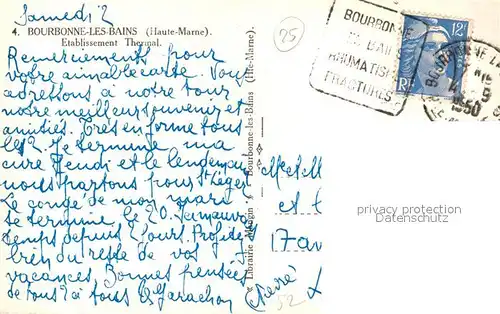 Samedi 2
4. BOURBONNE-LES-BAINS (Haute-Marne).
Etablissement Thermal.
Remerciements pour
votre aimable carte. Vous
adressons à notre tour
notre meilleur souvenir et
amitiés. Très en forme tous
les 2. Je termine ma
cure Jeudi et le lendemain
nous partons pour St Léger
Le congé de mon mari
se termine le 20.
temps depuis 2 jours. Profitez
bien du reste de vos
vacances. Bonnes pensées
de tous 2 à tous
Librairie Bourbonne-les-Bains (Hte-Marne).
75
BOURBONNE
LES BAINS
RHUMATISMES
FRACTURES
12F
RF
BOURBONNE
1950
et
17 av
52
privacy protection
Datenschutz